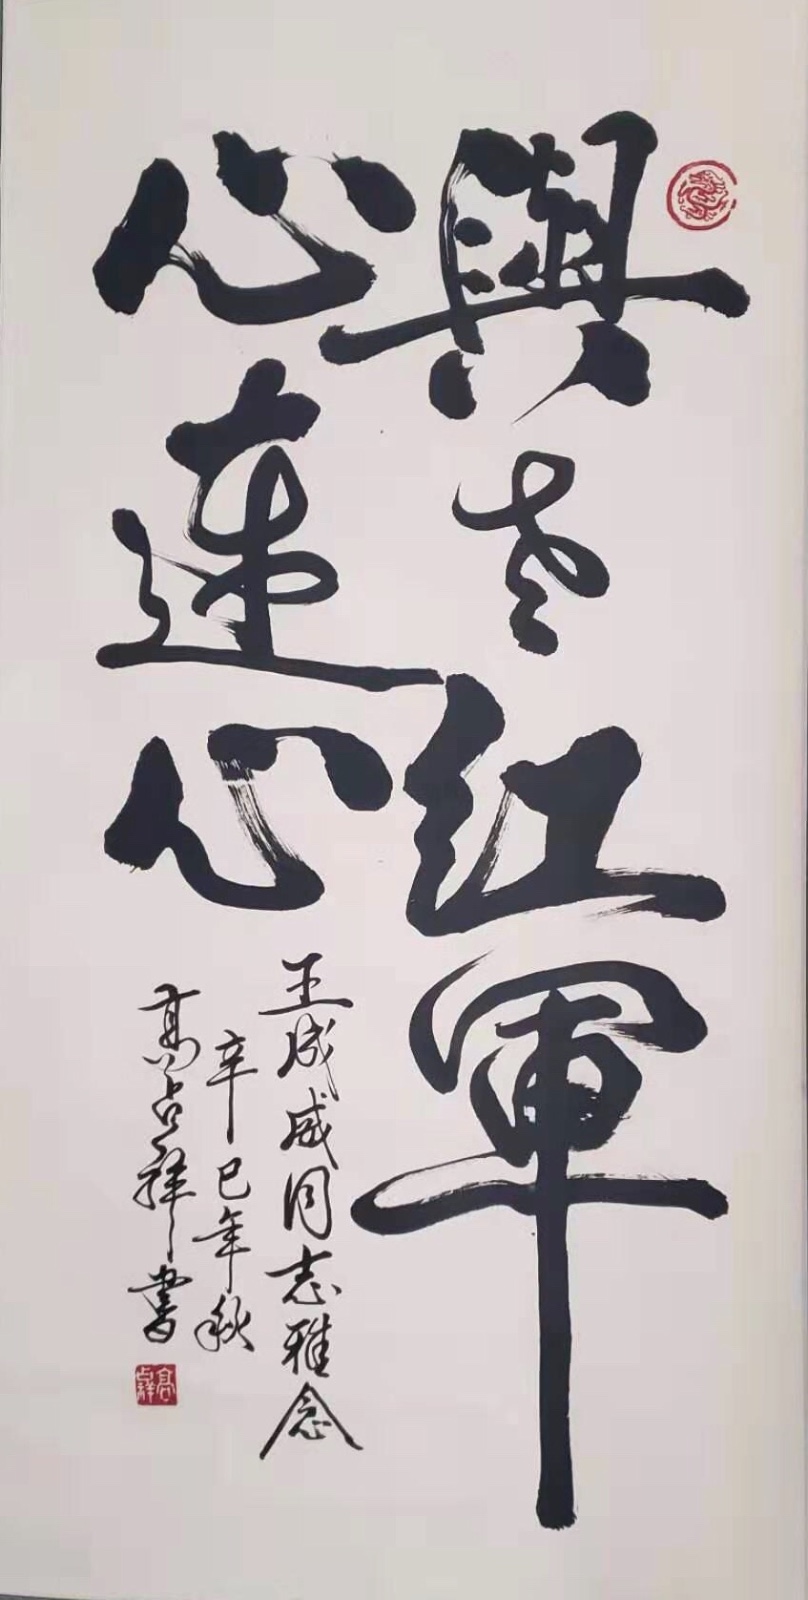 與老紅軍
心連心
王成威同志雅念
辛巳年秋
高占祥書
高占祥